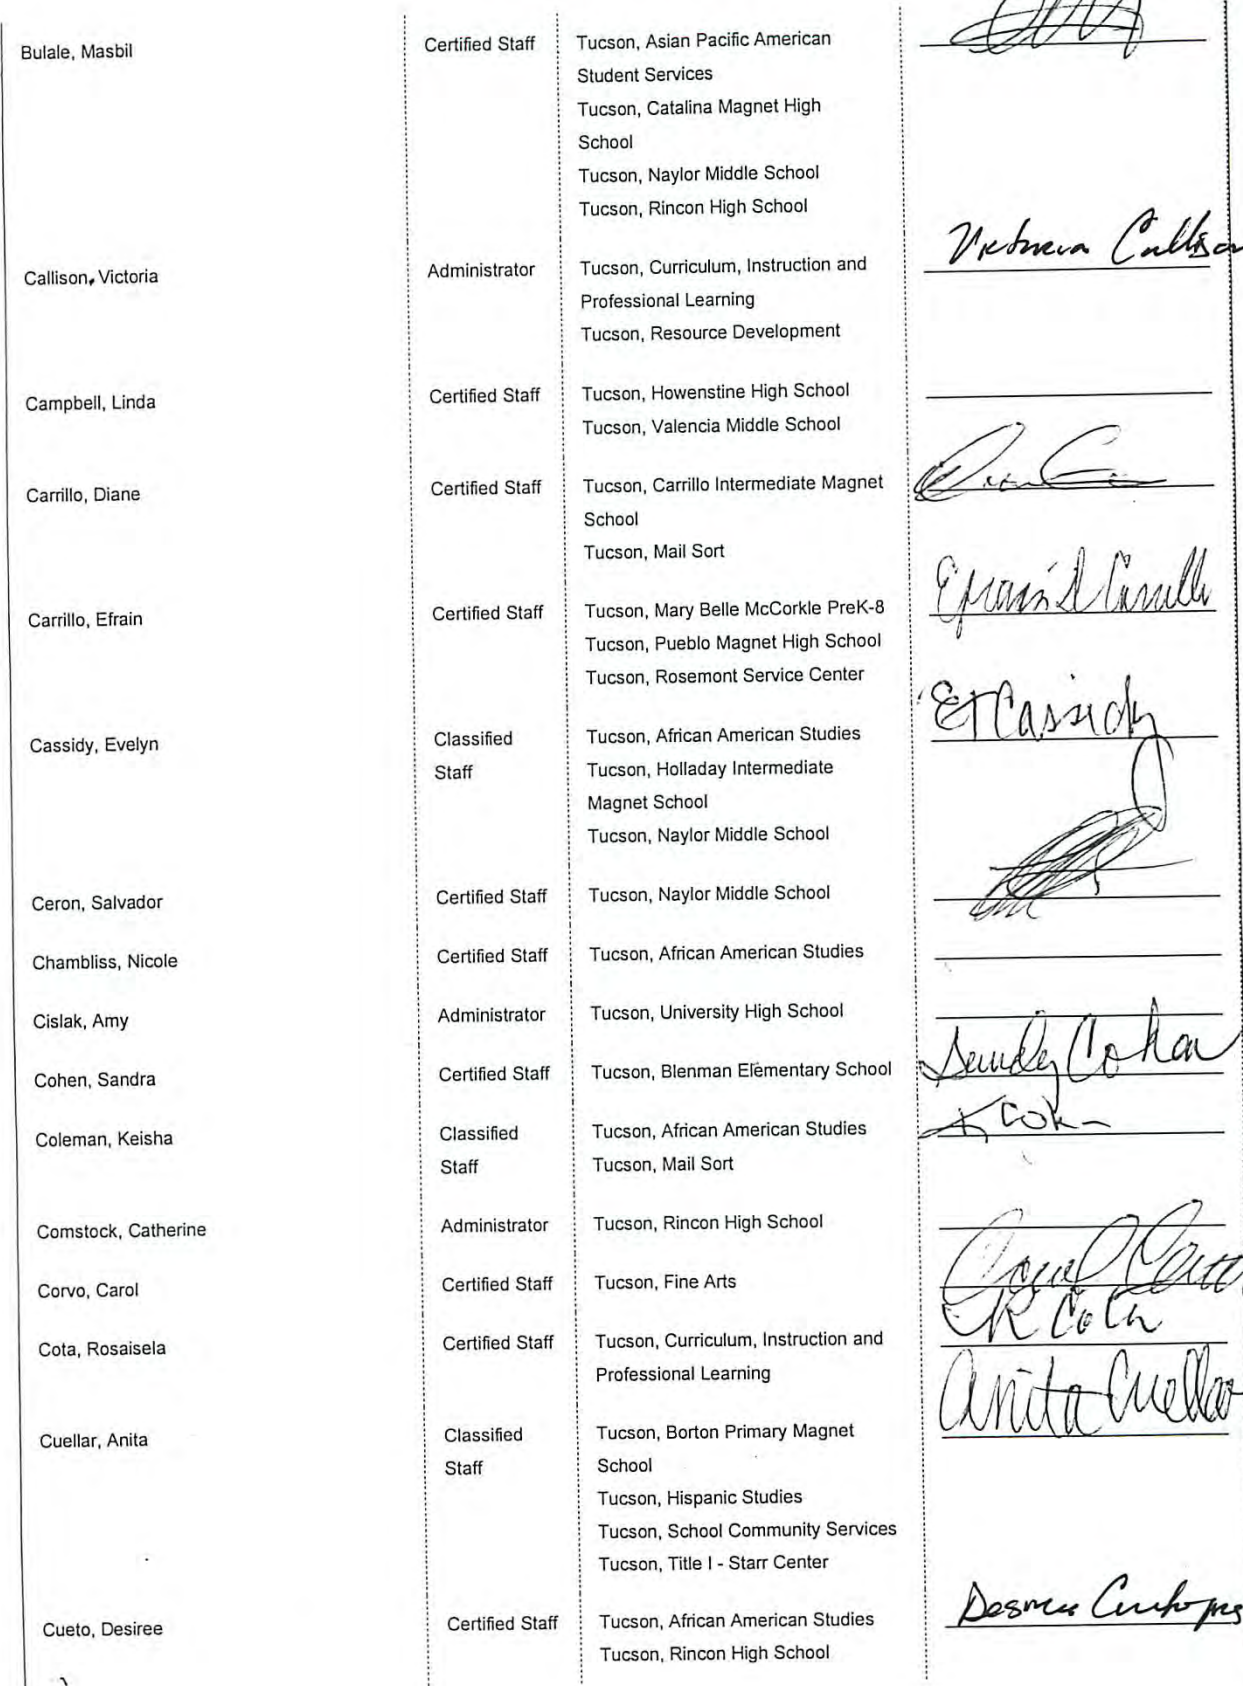 Bulale, Masbil Certified Staff Tucson, Asian Pacific American
Student Services
Tucson, Catalina Magnet High
School
Tucson, Naylor Middle School
Tucson, Rincon High School
Callison, Victoria Administrator Tucson, Curriculum, Instruction and Victoria Callison
Professional Learning
Tucson, Resource Development
Campbell, Linda Certified Staff Tucson, Howenstine High School
Tucson, Valencia Middle School
Carrillo, Diane Certified Staff Tucson, Carrillo Intermediate Magnet
School
Tucson, Mail Sort
Carrillo, Efrain Certified Staff Tucson, Mary Belle McCorkle PreK-8 Efrain D Carrillo
Tucson, Pueblo Magnet High School
Tucson, Rosemont Service Center
Cassidy, Evelyn Classified Tucson, African American Studies ET Cassidy
Staff Tucson, Holladay Intermediate
Magnet School
Tucson, Naylor Middle School
Ceron, Salvador Certified Staff Tucson, Naylor Middle School
Chambliss, Nicole Certified Staff Tucson, African American Studies
Cislak, Amy Administrator Tucson, University High School
Cohen, Sandra Certified Staff Tucson, Blenman Elementary School Sandy Cohen
Coleman, Keisha Classified Tucson, African American Studies
Staff Tucson, Mail Sort
Comstock, Catherine Administrator Tucson, Rincon High School
Corvo, Carol Certified Staff Tucson, Fine Arts Carol Corvo
Cota, Rosaisela Certified Staff Tucson, Curriculum, Instruction and R Cota
Professional Learning
Cuellar, Anita Classified Tucson, Borton Primary Magnet Anita Cuellar
Staff School
Tucson, Hispanic Studies
Tucson, School Community Services
Tucson, Title I - Starr Center
Cueto, Desiree Certified Staff Tucson, African American Studies Desiree
Tucson, Rincon High School